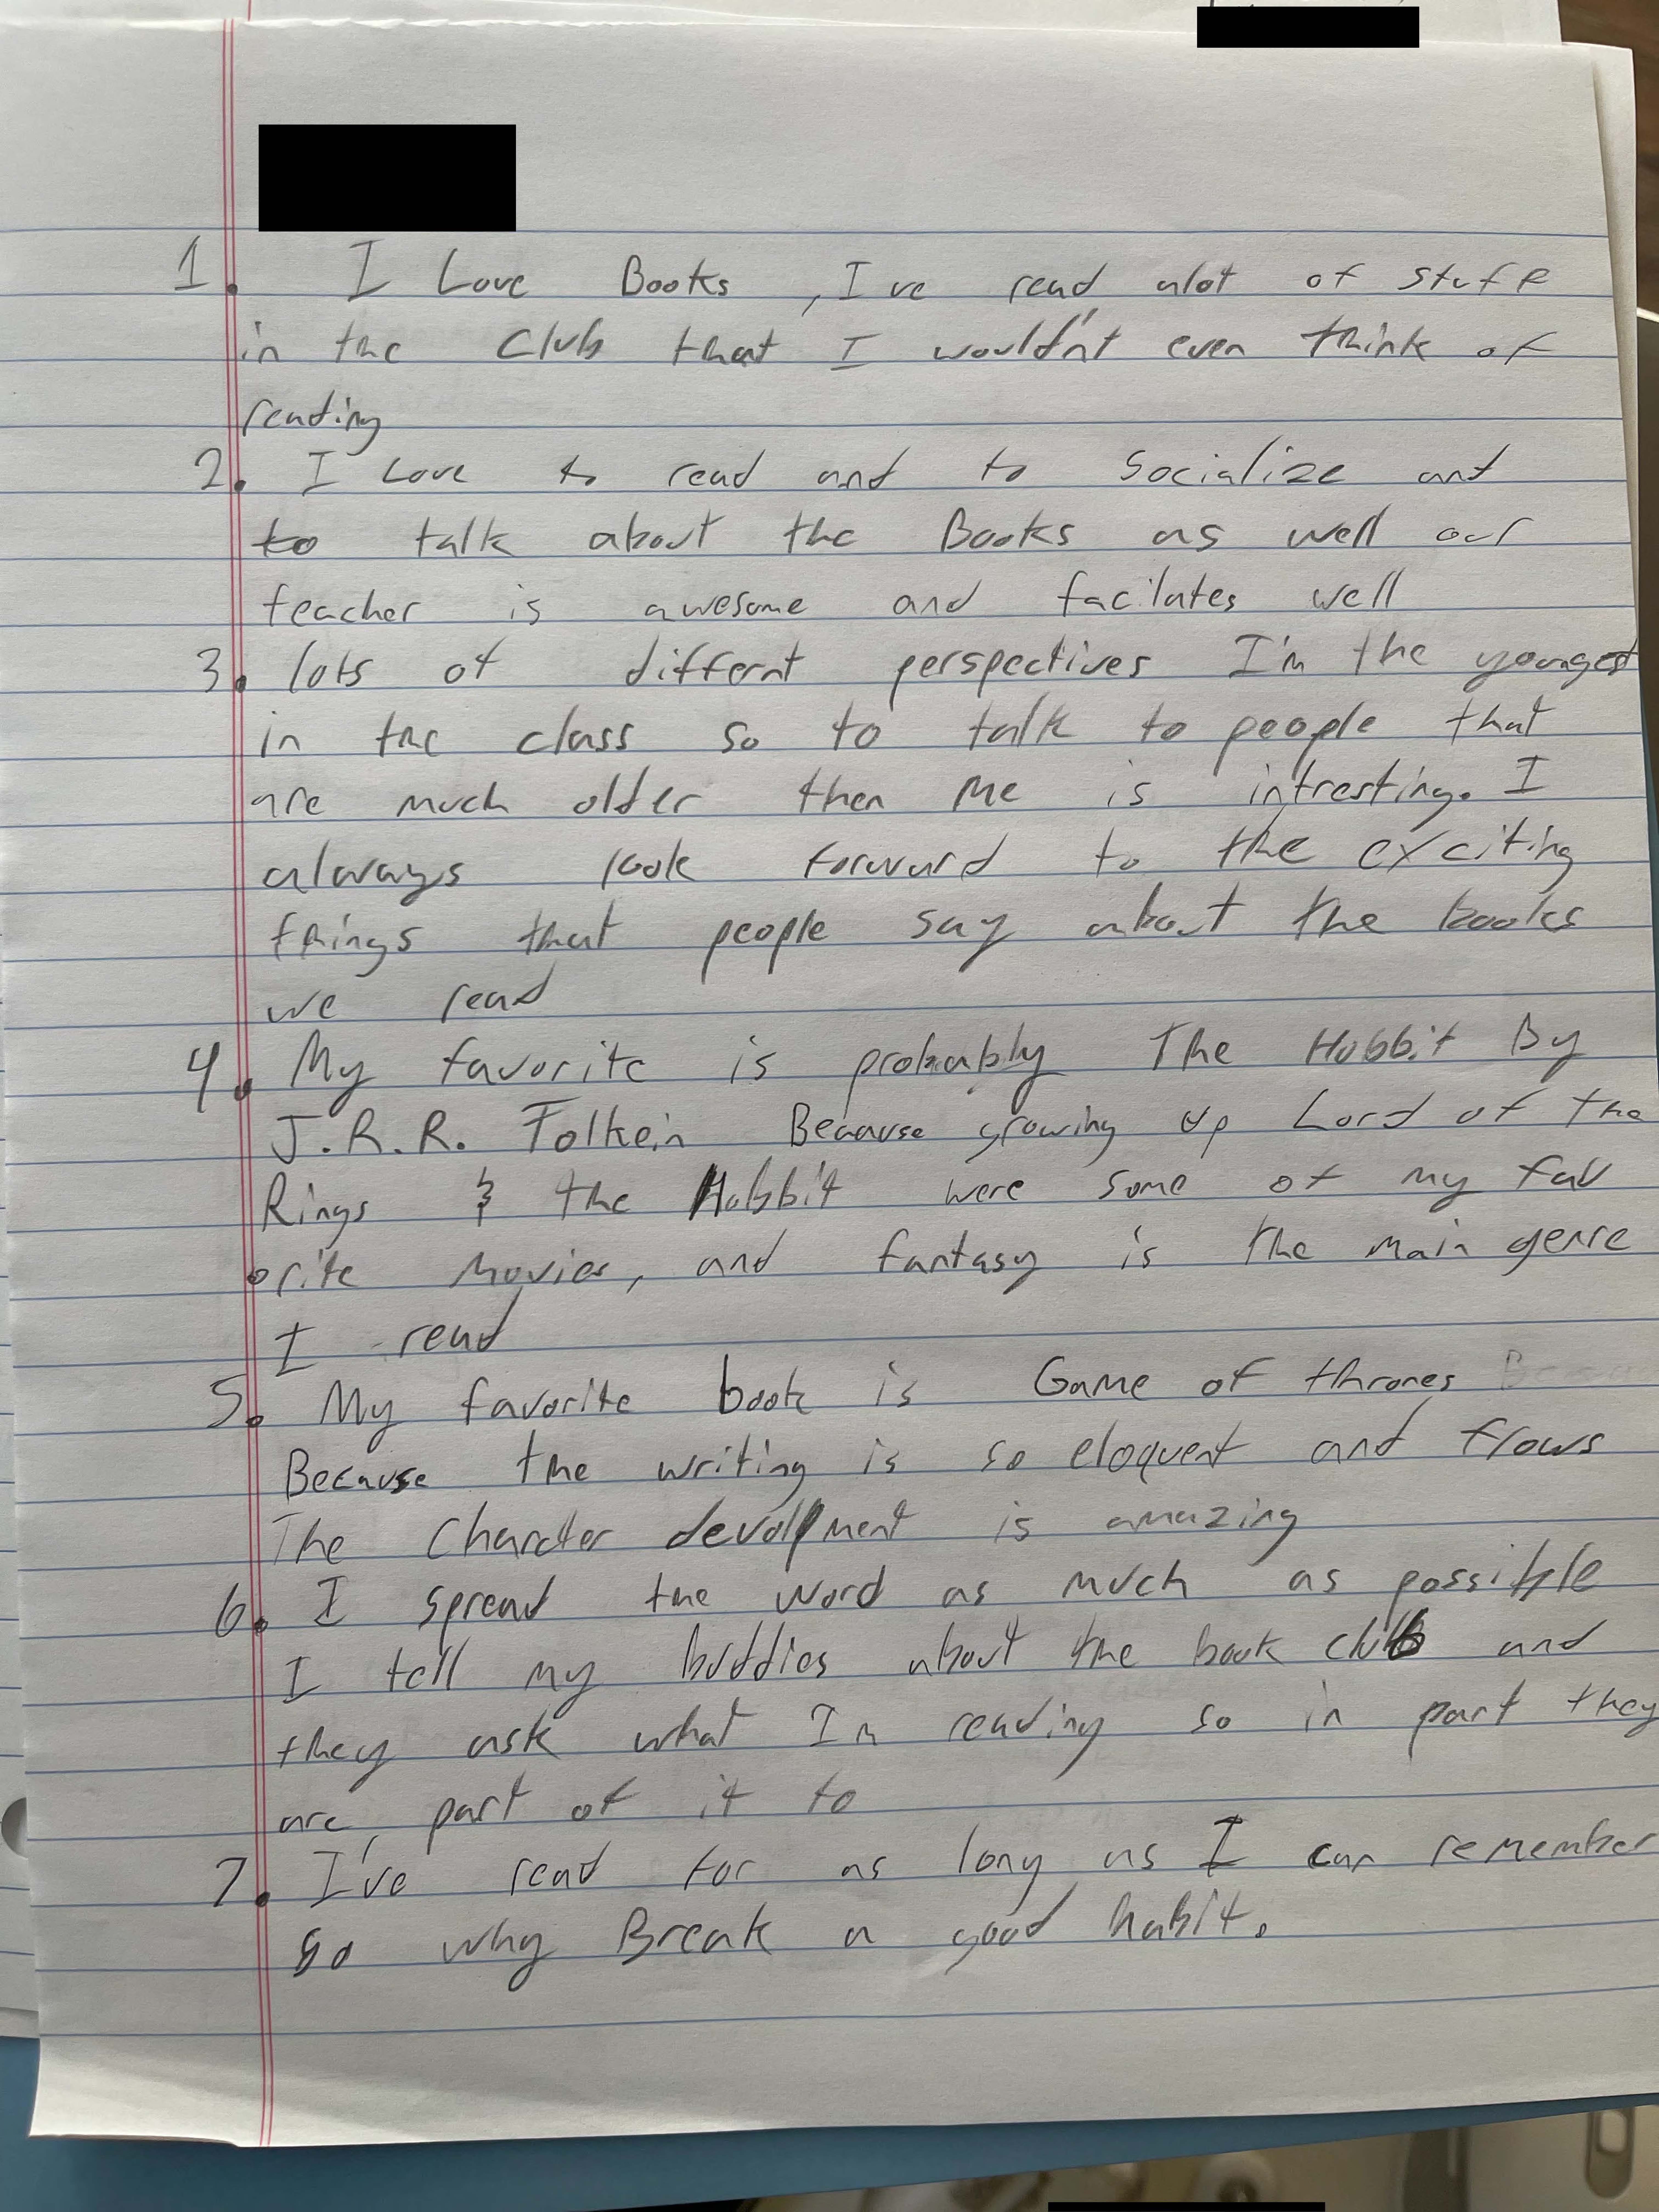 1. I Love Books, I ve read alot of stuff
in the Club that I wouldn't even think of
reading
2. I Love to read and to Socialize and
to talk about the Books as well our
teacher is awesome and facilates well
3. lots of differnt perspectives I'm the youngest
in the class so to talk to people that
are much older then me is intresting. I
always look forward to the exciting
things that people say about the books
we read
4. My favorite is probably The Hobbit By
J.R.R. Tolkein Because growing up Lord of the
Rings & the Hobbit were some of my fav
orite movies, and fantasy is the main genre
I read
5. My favorite book is Game of thrones
Because the writing is so eloquent and flows
The Charcter devolpment is amazing
6. I spread the word as much as possible
I tell my buddies about the book club and
they ask what Im reading so in part they
are part of it to
7. I've read for as long as I can remember
so why Break a good habit.